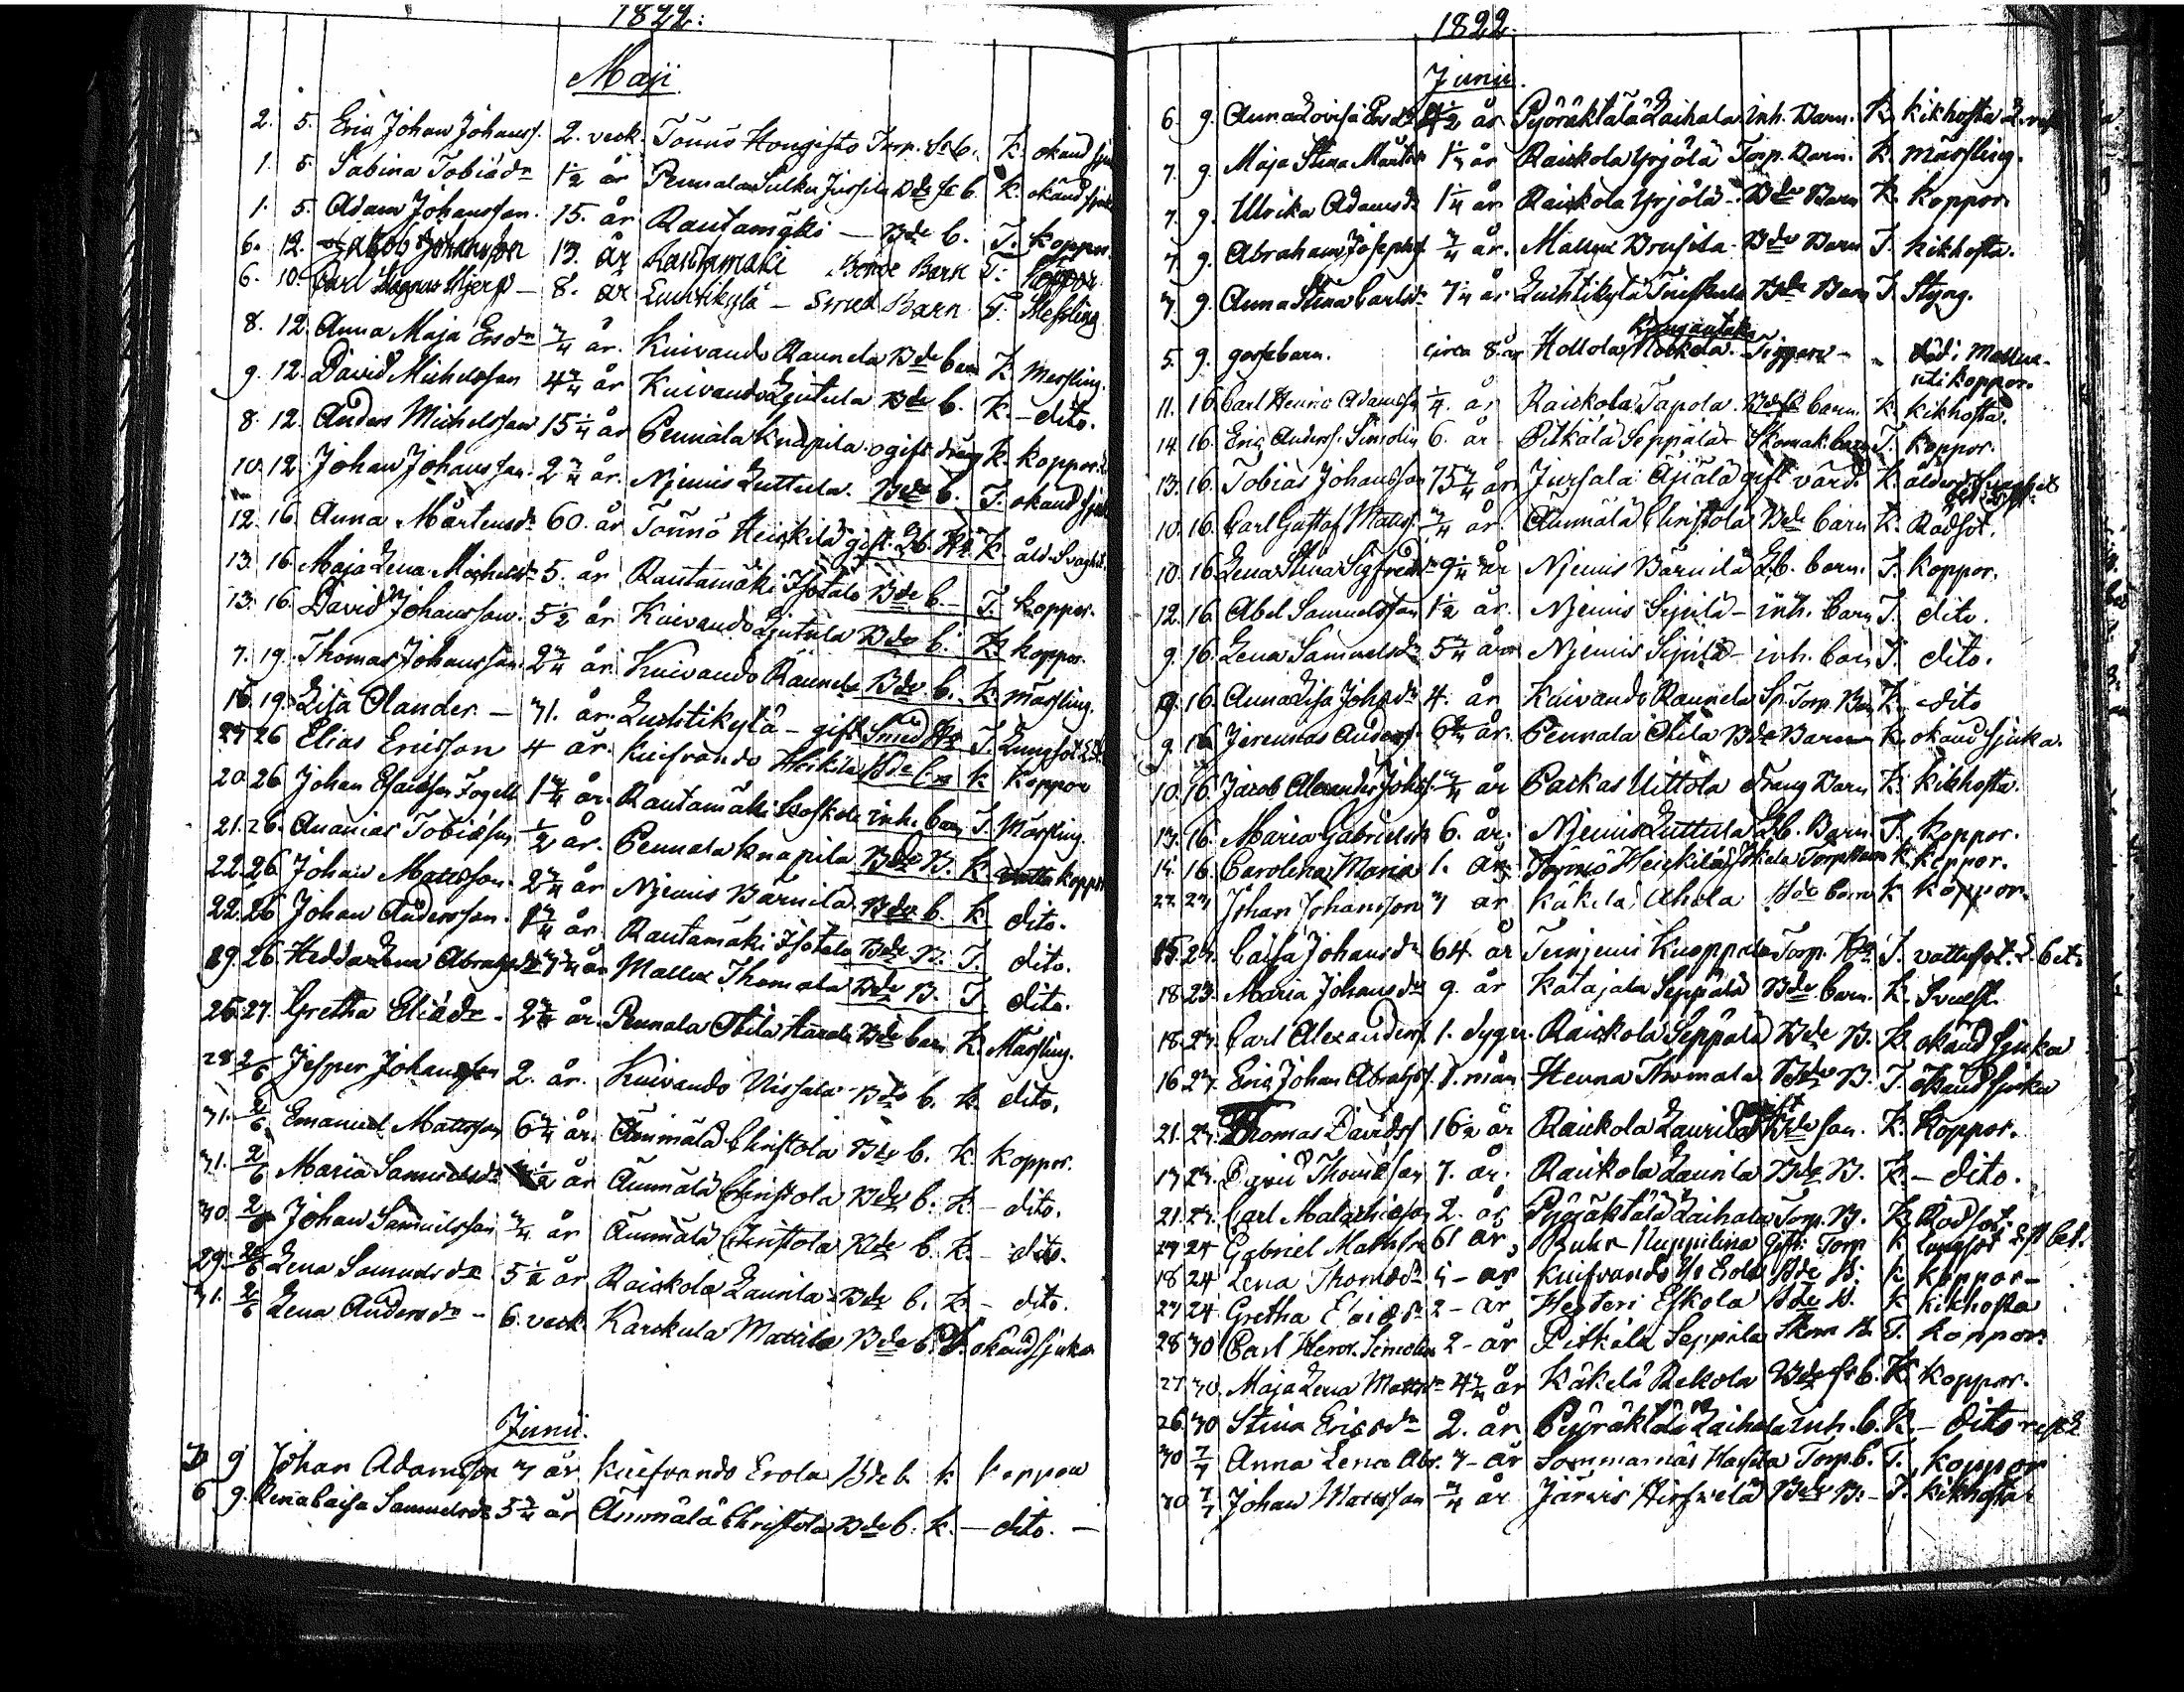 1822:
Maji
2. 5. Eric Johan Johanss. 2. veck. Tönnö Hongisto Torp. b. K. okänd
1. 5. Sabina Tobiædr 1½ år Pennala Sulku Jussila Bde b. K. okänd
1. 5. Adam Johansson. 15. år Rautamäki — Bde b. T. koppor.
6. 12. Jacob Johansson 13. år Rautamäki Bonde Barn T. koppor
6. 10. Carl Magnus Hjerp – 8. år Luhtikylä – Smed Barn T. Messling
8. 12. Anna Maja Ersdr ¾ år. Kuivando Raunela Bde barn K. Messling.
9. 12. David Michelsson 4¾ år Kuivando Bde b. K. – dito.
8. 12. Anders Michelsson 15¼ år Pennala Knapila ogift dräng K. koppor.
10. 12. Johan Johansson. 2¾ år. Niemis Luttula. Bde b. T. okänd
12. 16. Anna Mårtensdr 60. år Tönnö Heickilä gift K. åld. Svaghet.
13. 16. Maja Lena Michelsdr 5. år Rautamäki Isotalo Bde b. T. koppor.
13. 16. David Johansson. 5½ år Kuivando Bde b. K. koppor.
7. 19. Thomas Johansson. 2¾ år. Kuivando Raunela Bde b. K. Mässling.
16. 19. Lisa Olander – 71. år. Luhtikylä – gift Smed T. Lungsot
24 26 Elias Ericsson 4 år. Kuifvando Heikilä Bde b. K koppor
20. 26 Johan Esaiasson Fogell 1¾ år. Rautamäki inh. barn T. Mässling.
21. 26. Ananias Tobiæson ½ år. Pennala Knapila Bde B. K. koppor
22. 26 Johan Mattsson 2¾ år Niemis Bärnilä Bde b. K. dito.
22. 26 Johan Andersson. 1¾ år. Rautamäki Isotalo Bde B. T. dito.
19. 26. Hedda Lena Abrahsdr år Mallux Thomola Bde B. T. dito.
25. 27. Gretha Eliædr. 2¾ år. Pennala Ottila Bde barn K. Mässling.
28. 2/6 Jesper Johansson 2. år. Kuivando Uissala Bde b. K. dito.
31. 2/6 Emanuel Mattsson 6¾ år. Ämmälä Christola Bde b. K. koppor.
31. 2/6 Maria Samuelsdr ½ år Ämmälä Christola Bde b. K. – dito.
30. 2/6 Johan Samuelsson ¾ år Ämmälä Christola Bde b. K. – dito.
29. 2/6 Lena Samuelsdr 5½ år Raickola Laurila Bde b. K. – dito.
31. 2/6 Lena Andersdr – 6. veck Karckula Mattila Bde b. T. okänd sjuka
Junii.
9 Johan Adamsson 3 år Kuifvando Erola Bde b. K koppor
6 9. Lena Caisa Samuelsdr 5¾ år Ämmälä Christola Bde b. K. – dito. –
1822.
Junii.
6. 9. Anna Lovisa år Pyöräktälä Laihala inh. Barn. K. kikhosta
7. 9. Maja Stina Mårtsdr 1½ år Raickola Yrjölä Torp. Barn. K. mässling.
7. 9. Ulrika Adamsdr 1¼ år Raickola Yrjölä – Bde Barn K. koppor.
7. 9. Abraham Josephss ¾ år. Mallux Brusila Bde Barn T. kikhosta.
7. 9. Anna Stina Carlsdr 7¼ år Luhtikylä Bde Barn T. Styng.
5. 9. gossebarn. circa 8. år Hollola Tiggare – " död i Mallux
uti koppor.
11. 16. Carl Henric Adamsson ¼. år Raickola Tapola. Bde barn. K. kikhosta.
14. 16. Eric Anderss. Simolin 6. år Pitkälä Seppälä Skomak. barn T. koppor.
13. 16. Tobias Johansson 75¾ år Jursala Äjälä gift värd. K. ålderd. Svaghet
10. 16. Carl Gustaf Matss. ¾ år. Ämmälä Christola Bde barn K. Rödsot.
10. 16. Lena Stina Sigfredsdr 9¼ år Niemis Bärnilä barn. T. koppor.
12. 16. Abel Samuelsson 1½ år. Niemis Sipilä – inh. barn T. dito.
9. 16. Lena Samuelsdr 5¾ år Niemis Sipilä – inh. barn T. dito.
9. 16. Anna Lisa Johsdr 4. år Kuivando Raunela Torp. Barn K. – dito
9. 16 Jeremias Anderss. 6¾ år. Pennala Otila Bde Barn K. okänd sjuka.
10. 16. Jacob Alexander Johss ¾ år Parkas Uittola Dräng Barn K. Kikhosta.
13. 16. Maria Gabrielsdr 6. år. Niemis Luttula Barn T. koppor.
14. 16. Carolina Maria 1. år. Tönnö Heickilä Torp. Barn K. koppor.
22 23 Johan Johansson 3 år Käkelä Ahola Bde barn K koppor.
15. 23. Caisa Johansdr 64. år Kuoppala Torp. T. vattusot.
18. 23. Maria Johansdr 9. år Katajala Seppälä Bde barn. K. Svulst.
18. 23. Carl Alexanderss. 1. dygn. Raickola Seppälä Bde B. K. okänd sjuka
16. 23. Eric Johan Abrahss. mån Henna Thomola Bde B. T. okänd sjuka
21. 23. Thomas Davidss 16½ år Raickola Laurila ogift Bde son. K. koppor.
17. 23. David Thomasson 7. år. Raickola Laurila Bde B. K. – dito.
21. 23. Carl Malachiasson 2. år Pyöräktälä Laihala Torp. B. K. Rödsot.
24 24 Gabriel Mathsson 61 år, Gift Torp K Lungsot
18 24 Lena Thomædr – år Kuifvando Erola Bde B. K koppor –
23 24 Gretha 2 – år Hesteri Eskola Bde B. K kikhosta
28 30 Carl Henr. Simolin 2 – år Pitkälä Seppälä Skom B. T. koppor.
27. 30. Maja Lena Mattsdr 4¾ år Käkelä Rekola Bde b. K. koppor.
26. 30 Stina Ericsdr 2. år Pyöräktälä Laihala inh. b. K. – dito
30 7/7 Anna Lena Abr. 3 – år Sommarnäs Torp. b. T. koppor
30 7/7 Johan Matsson ¾ år Järvis Hirfvelä Bde B: – T. kikhosta